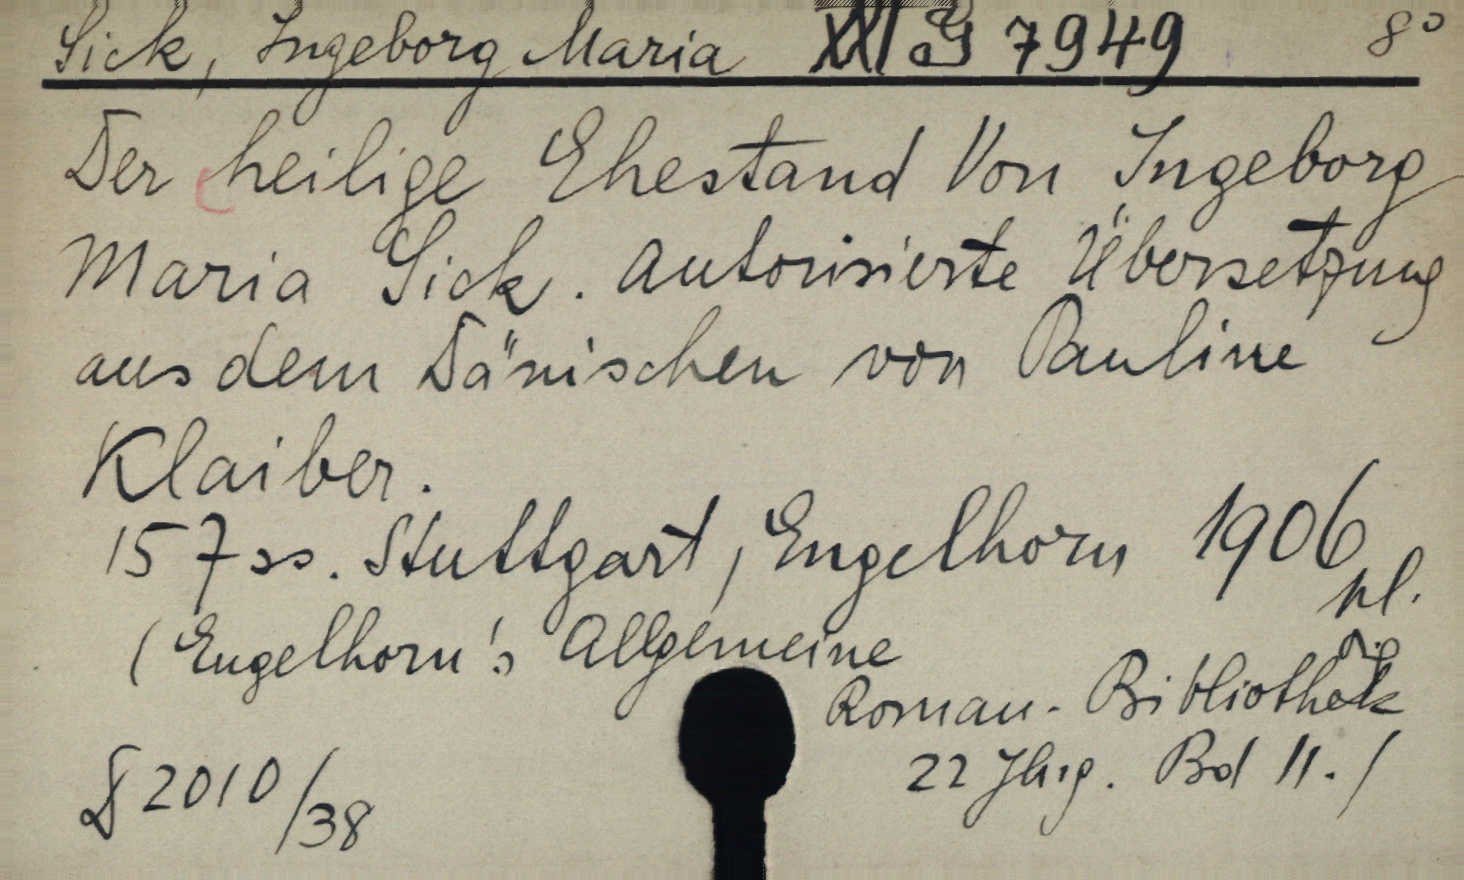 Sick, Ingeborg Maria XXI G 7949 8°
Der heilige Ehestand Von Ingeborg
Maria Sick. Autorisierte Übersetzung
aus dem Dänischen von Pauline
Klaiber.
157 ss. Stuttgart, Engelhorn 1906
(Engelhorn's Allgemeine
Roman-Bibliothek
22 Jhrg. Bd 11.)
2010/38